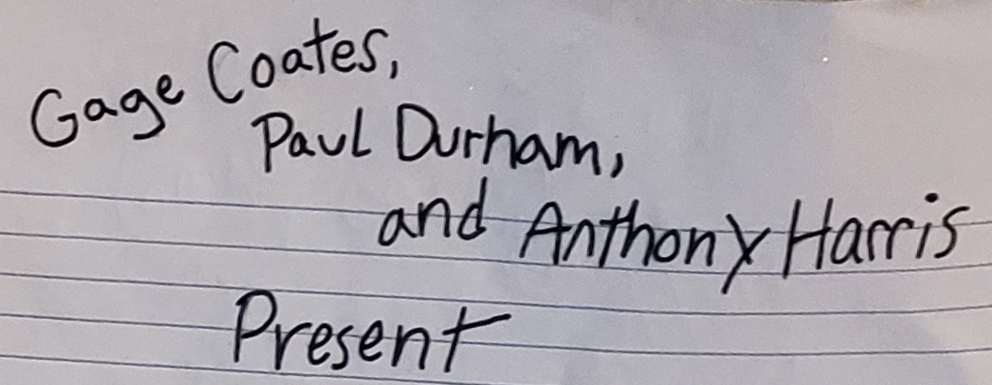 Gage Coates,
Paul Durham,
and Anthony Harris
Present